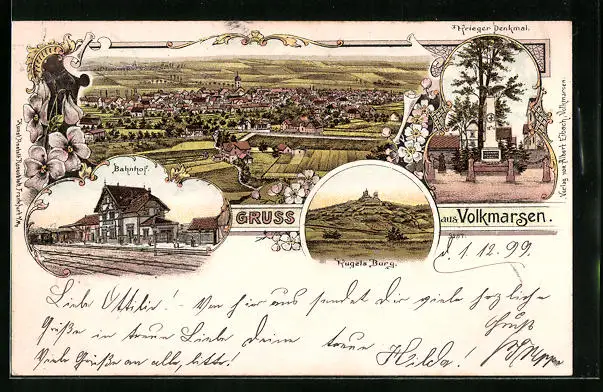 Krieger Denkmal.
Bahnhof.
GRUSS
aus Volkmarsen.
Kugels Burg.
Verlag von Albert Elbach, Volkmarsen.
d. 1. 12. 99.
Liebe Ottilie! – Von hier aus sendet dir viele herzliche
Grüße in treue Liebe deine treue Hilda!
Gruß
Viele Grüße an alle, bitte!